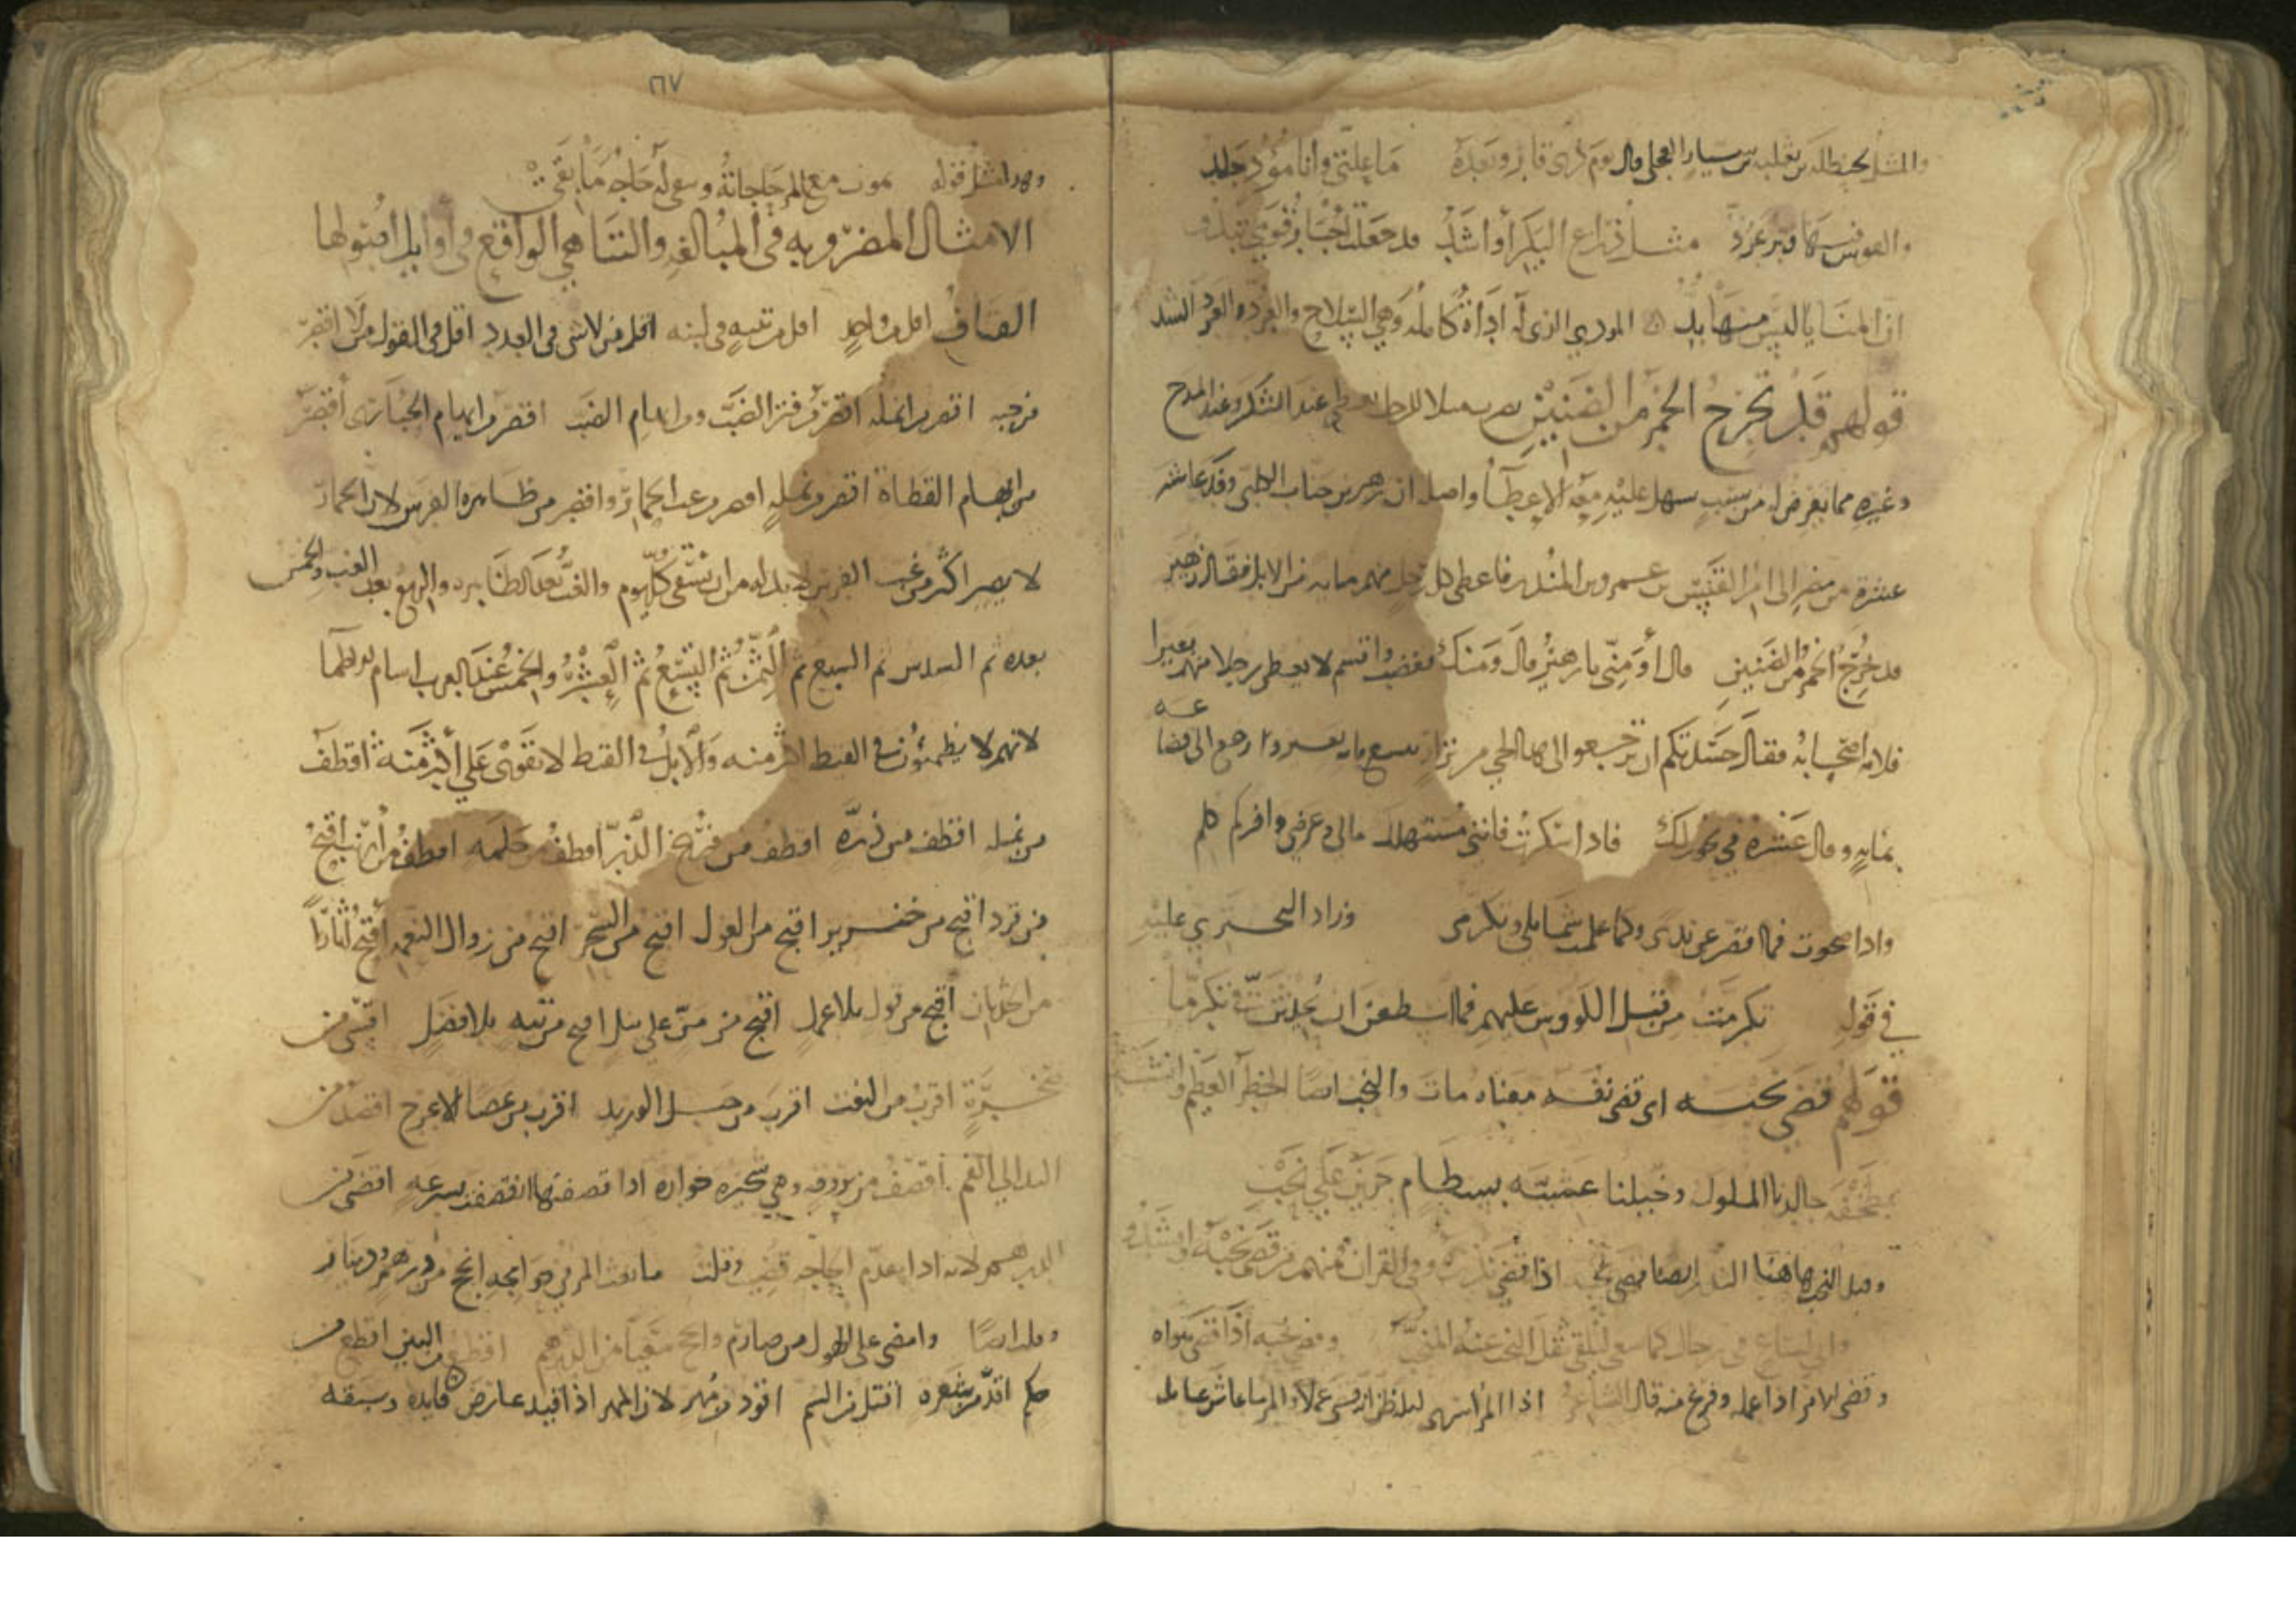 والمثل لحنظلة بن ثعلبة بن سيار العجلي قال يوم ذي قار وبعده ما علتي وأنا مؤد جلد
والقوس فيها وتر عرد مثل ذراع البكر أو أشد قد جعلت أخبار قومي تبدو
ان المنايا ليس منها بد المودي الذي له أداة كاملة وهي السلاح والعرد الشد
قولهم قد تخرج الخمر من الضنين عند السكر وعند المدح
وغيره مما يعرض له من سبب سهل عليه معه الإعطاء واصله ان زهير بن جناب الكلبي وفد عاشر
عشرة من مضر إلى امرئ القيس بن عمرو بن المنذر فاعطى كل رجل منهم مايه من الابل فقال زهير
قد تخرج الخمر من الضنين قال أو مني يا زهير قال ومنك فغضب واقسم لا يعطي رجلا منهم بعيرا
فلامه أصحابه فقال حسدتكم ان ترجعوا الى هذا الحي من نزار بتسع مايه بعير وارجع الى قضاعه
بمايه وقال عنترة في نحو ذلك فاذا سكرت فانني مستهلك مالي وعرضي وافر لم يكلم
واذا صحوت فما اقصر عن ندى وكما علمت شمايلي وتكرمي وزاد البحتري عليه
في قوله تكرمت من قبل الكؤوس عليهم فما اسطعن ان يحدثن فيك تكرما
قولهم قضى نحبه اى قضى نفسه معناه مات والنحب ايضا الخطر العظيم وانشد
بطخفة جالدنا الملوك وخيلنا عشية بسطام جرين على نحب
وقيل النحب هاهنا النذر ايضا قضى نحبه اذا قضى نذره وفي القران منهم من قضى نحبه وانشد
واني لساع في رجال كما سعى وقضى نحبه اذا قضى هواه
وقضى الامر اذا عمله وفرغ منه قال الشاعر اذا المرء اسرى ليله ظن انه قضى عملا والمرء ما عاش عامل
٦٧
وهذا مثل قوله تموت مع المرء حاجاته وتبقى له حاجة ما بقي
الامثال المضروبه في المبالغه والتناهي الواقع في أوايل اصولها
القاف اقل من واحد اقل من تبنه في لبنه اقل من لا شى في العدد اقل في القول من لا اقصر
من حبه اقصر من انمله اقصر من فتر الضب ومن ابهام الضب اقصر من ابهام الحبارى أقصر
من ابهام القطاة اقصر من نمله اقصر من غب الحمار واقصر من ظاهره الفرس لان الحمار
لا يصبر اكثر من غب الفرس لا بد له من ان يسقى كل يوم والغب بعد الظاهره والربع بعد الغب والخمس
بعده ثم السدس ثم السبع ثم الثمن ثم التسع ثم العشر والخمس عند العرب اشام الاظماء
لانهم لا يظمئون في القيظ اكثر منه والابل في القيظ لا تقوى على أكثر منه اقطف
من نمله اقطف من ذره اقطف من فريخ الذر اقطف من حلمه اقطف من أرنب أقبح
من قرد اقبح من خنزير اقبح من الغول اقبح من السحر اقبح من زوال النعمه أقبح اثارا
من الحدثان أقبح من قول بلا عمل اقبح من من على نيل اقبح من تيه بلا فضل اقسى من
صخرة اقرب من البعث اقرب من حبل الوريد اقرب من عصا الاعرج اقصد من
اليد الى الفم أقصف من بروقه وهي شجره خواره اذا قصفتها انقصفت بسرعه اقضى من
الدرهم لانه اذا عدم الحاجه قضيت وقلت ما بعث المرء في حوايجه انجح من درهم ودينار
وقلت ايضا وامضى على الهول من صارم وانجح سعيا من الدرهم اقطع من البين اقطع من
جلم اقد من شفره اقتل من السم اقود من مهر لان المهر اذا قيد عارض قايده وسبقه